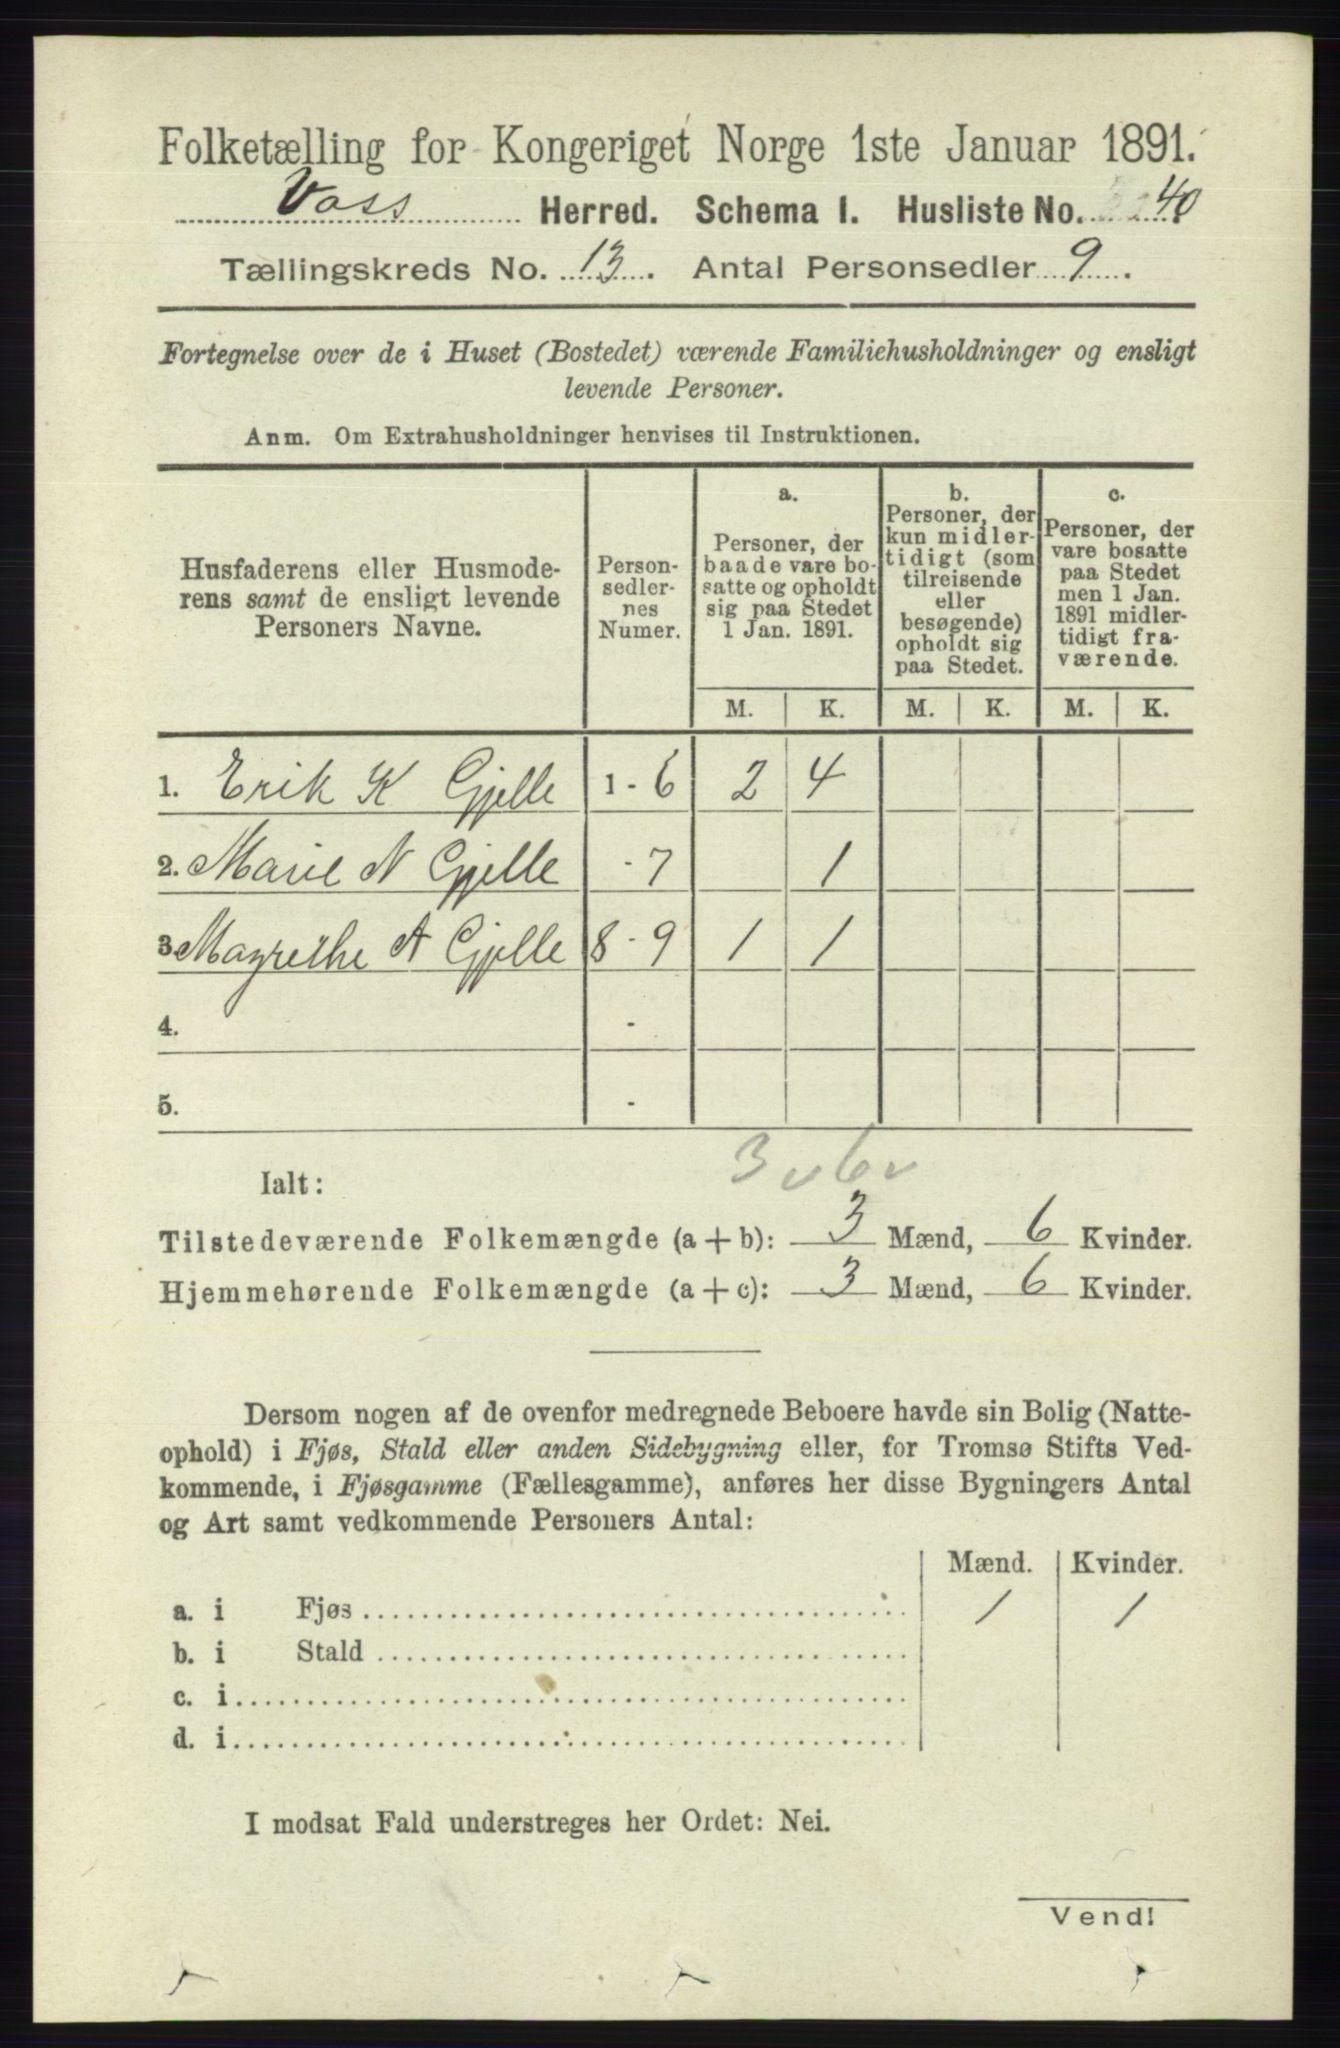 Folketælling for Kongeriget Norge 1ste Januar 1891.
Voss Herred. Schema I. Husliste No. 40
Tællingskreds No. 13. Antal Personsedler 9.
Fortegnelse over de i Huset (Bostedet) værende Familiehusholdninger og ensligt
levende Personer.
Anm. Om Extrahusholdninger henvises til Instruktionen.
Husfaderens eller Husmode-
rens samt de ensligt levende
Personers Navne.
Person-
sedler-
nes
Numer.
a.
Personer, der
baade vare bo-
satte og opholdt
sig paa Stedet
1 Jan. 1891.
b.
Personer, der
kun midler-
tidigt (som
tilreisende
eller
besøgende)
opholdt sig
paa Stedet.
c.
Personer, der
vare bosatte
paa Stedet
men 1 Jan.
1891 midler-
tidigt fra-
værende.
M. K. M. K. M. K.
1. Erik K Gjelle 1 - 6 2 4
2. Marie N Gjelle - 7 1
3. Magrethe A Gjelle 8 - 9 1 1
4. -
5. -
3 v 6 v
Ialt:
Tilstedeværende Folkemængde (a + b): 3 Mænd, 6 Kvinder.
Hjemmehørende Folkemængde (a + c): 3 Mænd, 6 Kvinder.
Dersom nogen af de ovenfor medregnede Beboere havde sin Bolig (Natte-
ophold) i Fjøs, Stald eller anden Sidebygning eller, for Tromsø Stifts Ved-
kommende, i Fjøsgamme (Fællesgamme), anføres her disse Bygningers Antal
og Art samt vedkommende Personers Antal:
Mænd. Kvinder.
a. i Fjøs 1 1
b. i Stald
c. i
d. i
I modsat Fald understreges her Ordet: Nei.
Vend!